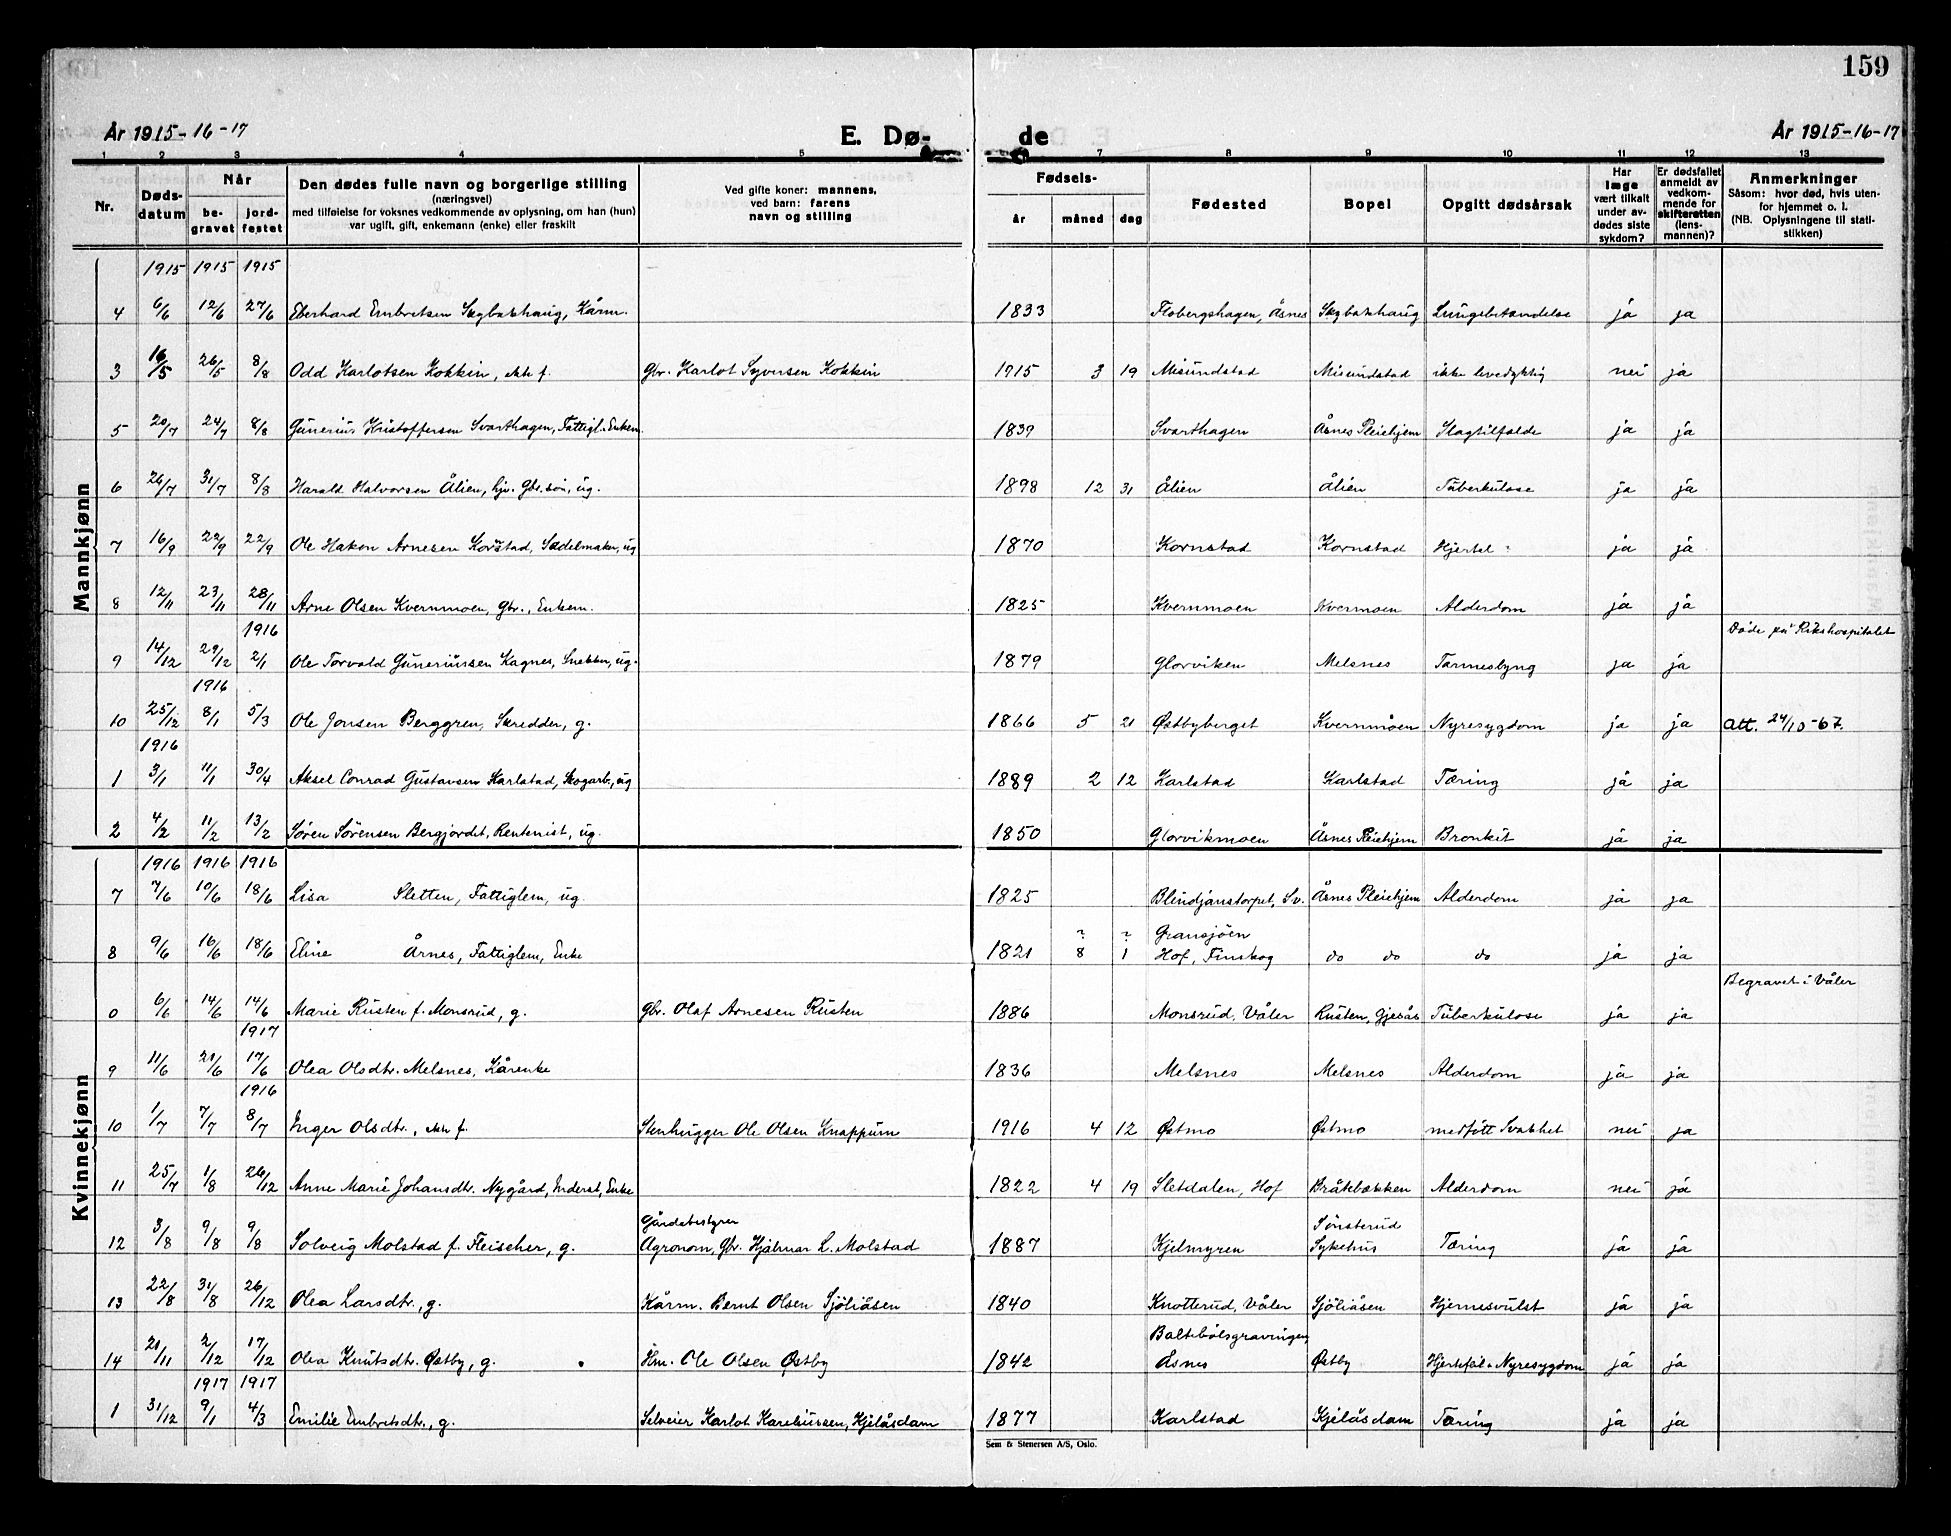 159
År 1915-16-17
E. Dø-
de
År 1915-16-17
1 2 3 4 5 7 8 9 10 11 12 13
Nr.
Døds-
datum
Når
be-
gravet
jord-
festet
Den dødes fulle navn og borgerlige stilling
(næringsvei)
med tilføielse for voksnes vedkommende av oplysning, om han (hun)
var ugift, gift, enkemann (enke) eller fraskilt
Ved gifte koner: mannens,
ved barn: farens
navn og stilling
Fødsels-
år måned dag
Fødested
Bopel
Opgitt dødsårsak
Har
læge
vært tilkalt
under av-
dødes siste
sykdom?
Er dødsfallet
anmeldt av
vedkom-
mende for
skifteretten
(lens-
mannen)?
Anmerkninger
Såsom: hvor død, hvis uten-
for hjemmet o. l.
(NB. Oplysningene til stati-
stikken)
Mannkjønn
1915 1915 1915
4 6/6 12/6 27/6 Eberhard Embretsen Skybakhaug, Kårm. 1833 Flobergshagen, Åsnes Skybakhaug Lungebetændelse ja ja
3 16/5 26/5 8/8 Odd Karlotsen Kokkin, ekte f. Gbr. Karlot Syversen Kokkin 1915 3 19 Misundstad Misundstad ikke levedyktig nei ja
5 20/7 24/7 8/8 Gunerius Kristoffersen Svarthagen, Fattigl. Enkem. 1839 Svarthagen Åsnes Pleiehjem Slagtilfælde ja ja
6 26/7 31/7 8/8 Harald Halvorsen Ålien, hjv. Gbr. søn, ug. 1898 12 31 Ålien Ålien Tuberkulose ja ja
7 16/9 22/9 22/9 Ole Hakon Arnesen Kornstad, Sadelmaker, ug 1870 Kornstad Kornstad ja ja
8 12/11 23/11 28/11 Arne Olsen Kvernmoen, Gbr., Enkem. 1825 Kvernmoen Kvernmoen Alderdom ja ja
1916 Døde på Rikshospitalet
9 14/12 29/12 2/1 Ole Torvald Guneriussen Kagnes, Snekker, ug. 1879 Glorviken Melsnes Tarmeslyng ja ja
1916
10 25/12 8/1 5/3 Ole Jonsen Berggren, Skredder, g. 1866 5 21 Østbyberget Kvernmoen Nyresygdom ja ja Att. 24/10-67.
1916
1 3/1 11/1 30/4 Aksel Conrad Gustavsen Karlstad, Skogarb., ug 1889 2 12 Karlstad Karlstad Tæring ja ja
2 4/2 11/2 13/2 Søren Sørensen Bergjordet, Rentenist, ug. 1850 Glorvikmoen Åsnes Pleiehjem Bronkit ja ja
Kvinnekjønn
1916 1916 1916
7 7/6 10/6 18/6 Lisa Sletten, Fattiglem, ug. 1825 Blindjanstorpet, Sv. Åsnes Pleiehjem Alderdom ja ja
? ? Gransjöen
8 9/6 16/6 18/6 Eline Årnes, Fattiglem, Enke 1821 8 1 Hof, Finskog do do do ja ja
Begravet i Våler
0 6/6 14/6 14/6 Marie Rusten f. Monsrud, g. Gbr. Olaf Arnesen Rusten 1886 Monsrud, Våler Rusten, Gjesås Tuberkulose ja ja
1917
9 11/6 21/6 17/6 Olea Olsdtr. Melsnes, Kårenke 1836 Melsnes Melsnes Alderdom ja ja
1916
10 1/7 7/7 8/7 Inger Olsdtr., ekte f. Stenhugger Ole Olsen Knappum 1916 4 12 Østmo Østmo medfött Svakhet nei ja
11 25/7 1/8 26/12 Anne Marie Johansdtr. Nygård, Inderst, Enke 1822 4 19 Sletdalen, Hof Bråtebækken Alderdom nei ja
Gårdsbestyrer Sönsterud
12 3/8 9/8 9/8 Solveig Molstad f. Fleischer, g. Agronom, Gbr. Hjalmar L. Molstad 1887 Kjelmyren Sykehus Tæring ja ja
13 22/8 31/8 26/12 Olea Larsdtr., g. Kårm. Bernt Olsen Sjöliåsen 1840 Knotterud, Våler Sjöliåsen Hjernesvulst ja ja
Baltebölsgravingen,
14 21/11 2/12 17/12 Olea Knutsdtr. Østby, g. Hm. Ole Olsen Østby 1842 Åsnes Østby Hjertefeil & Nyresygdom ja ja
1917 1917
1 31/12 9/1 4/3 Emilie Embretsdtr., g. Selveier Karlot Kareliussen, Kjelåsdam 1877 Karlstad Kjelåsdam Tæring ja ja
Sem & Stenersen A/S, Oslo.